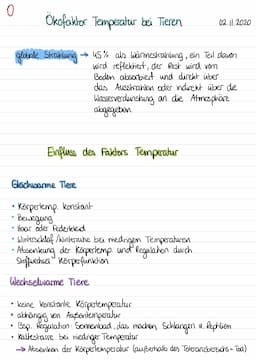 Ökofaktor Temperatur bei Tieren 02.11.2020
globale Strahlung → 45% als Wärmestrahlung, ein Teil davon
wird reflektiert, der Rest wird vom
Boden absorbiert und direkt über
das Ausstrahlen oder indirekt über die
Wasserverdunstung an die Atmosphäre
abgegeben
Einfluss des Faktors Temperatur
Gleichwarme Tiere
• Körpertemp. konstant
• Bewegung
• Haar oder Federkleid
• Winterschlaf / Winterruhe bei niedrigen Temperaturen
• Absenkung der Körpertemp. und Regulation durch
Stoffwechsel Körperfunktion
Wechselwarme Tiere
• keine konstante Körpertemperatur
• abhängig von Außentemperatur
• Bsp. Regulation: Sonnenbad, das machen Schlangen u. Reptilien
• Kältestarre bei niedriger Temperatur
→ Absenken der Körpertemperatur (außerhalb des Toleranzbereichs = Tod)